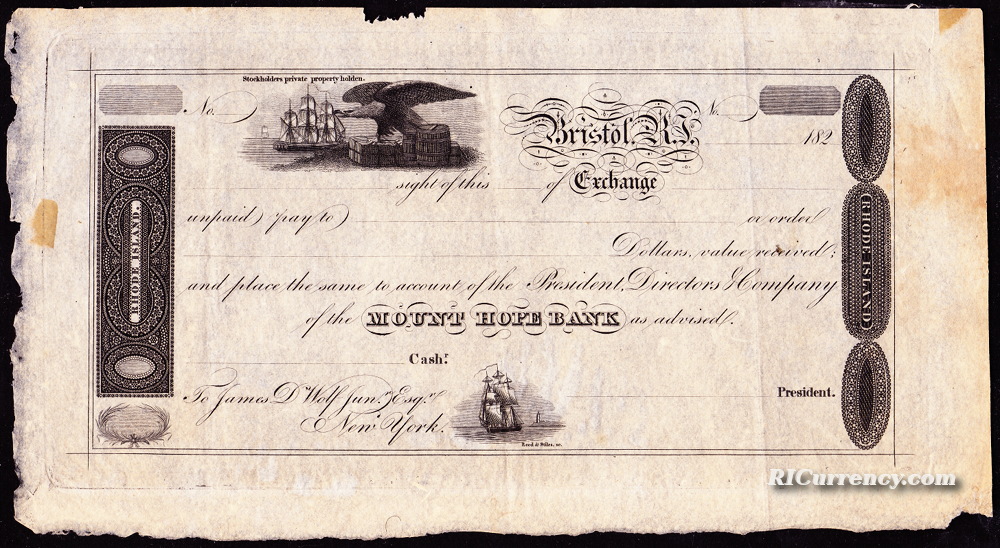 Stockholders private property holden.
No. No.
Bristol. R.I. 182
sight of this of Exchange
unpaid) pay to) or order
Dollars, value received;
and place the same to account of the President, Directors & Company
of the MOUNT HOPE BANK as advised.
Cash.r
To James D'Wolf Jun.r Esq.r
New York.
President.
RHODE ISLAND.
RHODE ISLAND
Reed & Stiles, sc.
RICurrency.com